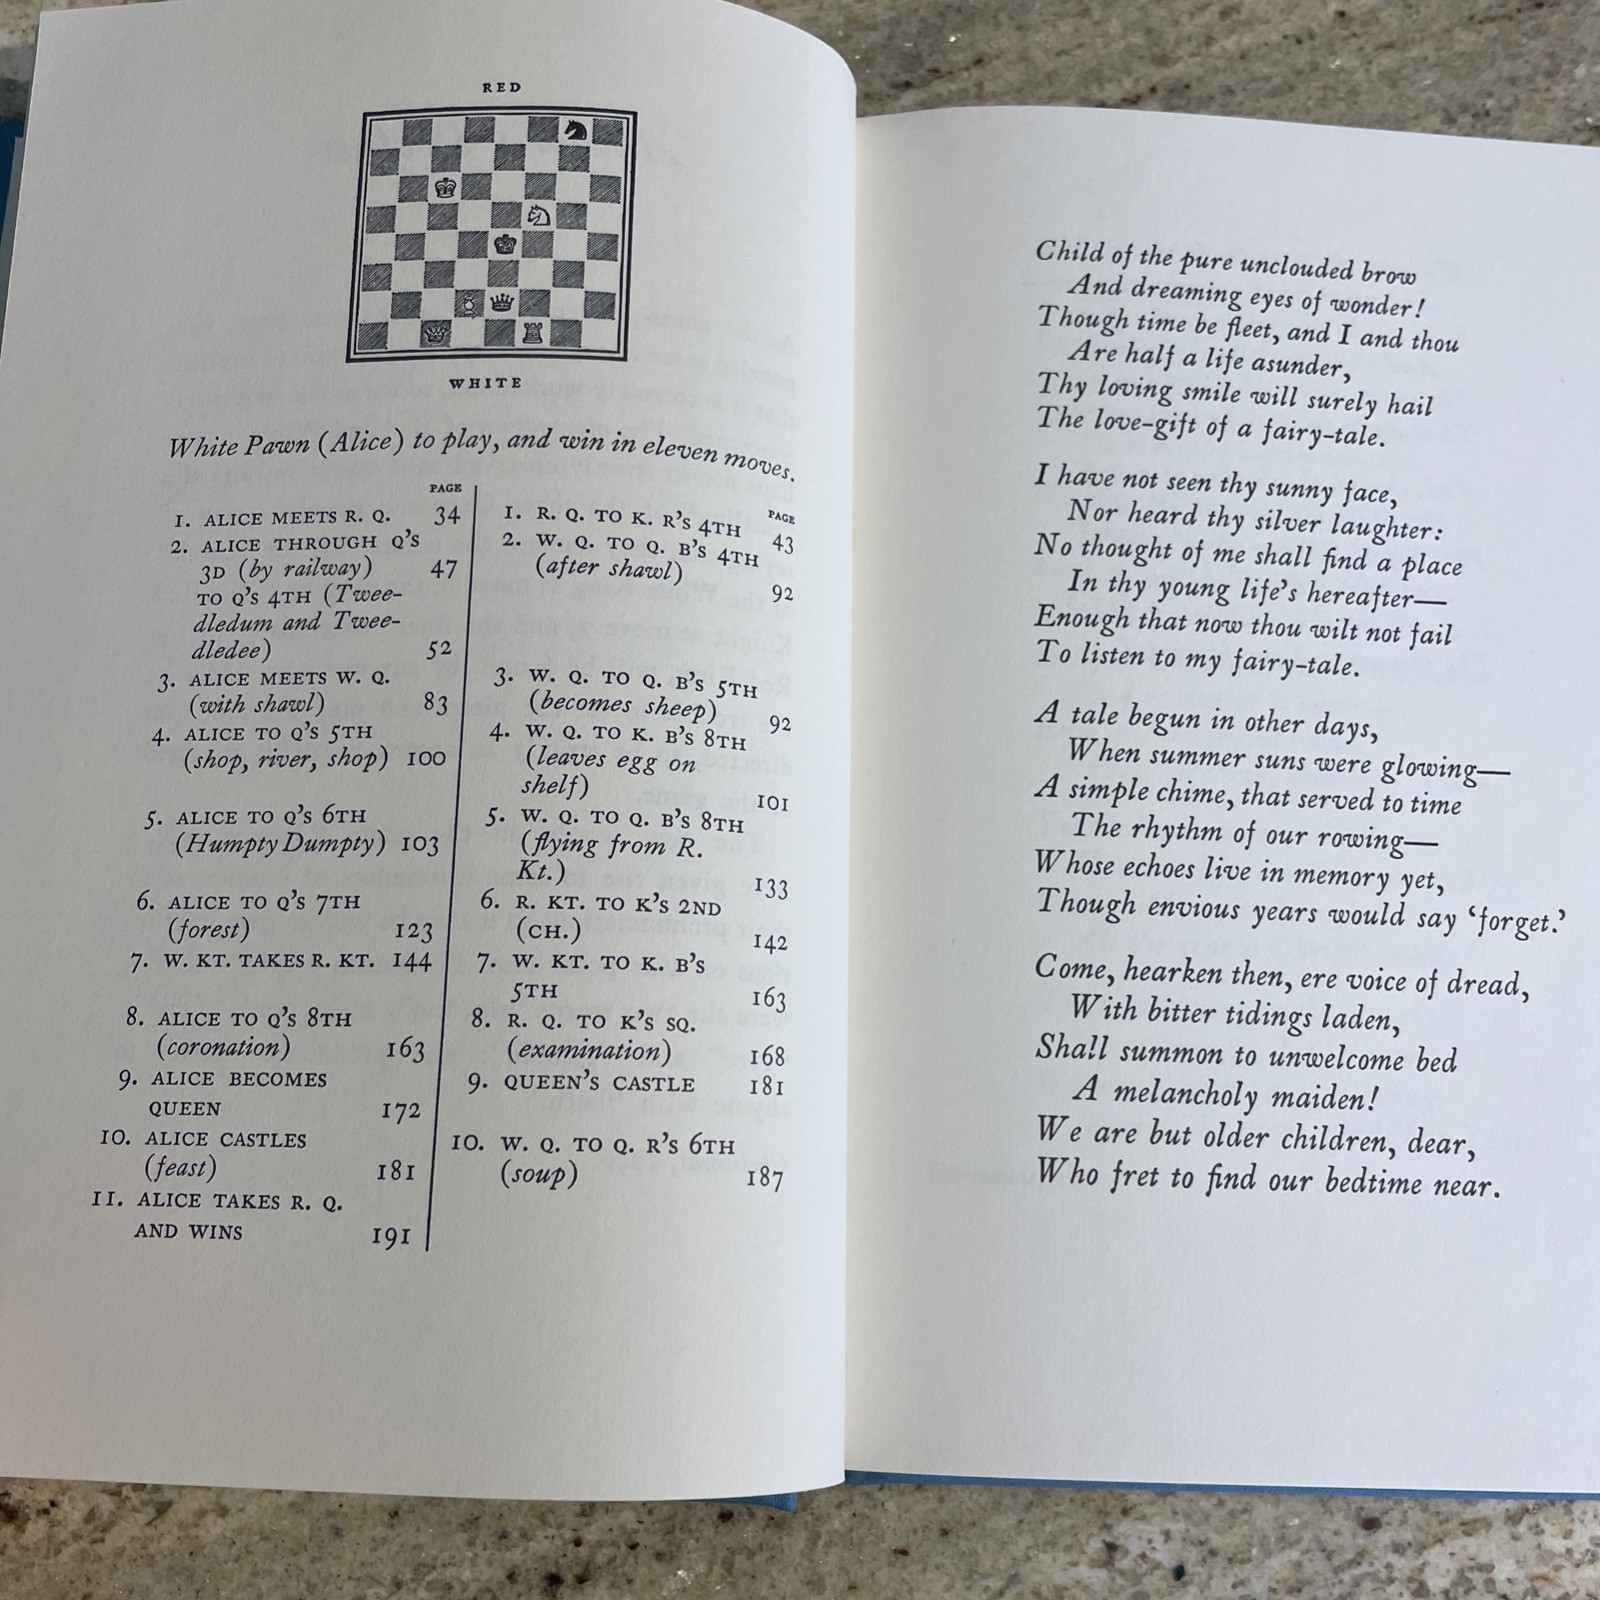 RED
WHITE
White Pawn (Alice) to play, and win in eleven moves.
PAGE
1. ALICE MEETS R. Q. 34
2. ALICE THROUGH Q'S
3D (by railway) 47
TO Q'S 4TH (Twee-
dledum and Twee-
dledee) 52
3. ALICE MEETS W. Q.
(with shawl) 83
4. ALICE TO Q'S 5TH
(shop, river, shop) 100
5. ALICE TO Q'S 6TH
(Humpty Dumpty) 103
6. ALICE TO Q'S 7TH
(forest) 123
7. W. KT. TAKES R. KT. 144
8. ALICE TO Q'S 8TH
(coronation) 163
9. ALICE BECOMES
QUEEN 172
10. ALICE CASTLES
(feast) 181
11. ALICE TAKES R. Q.
AND WINS 191
PAGE
1. R. Q. TO K. R'S 4TH 43
2. W. Q. TO Q. B'S 4TH
(after shawl) 92
3. W. Q. TO Q. B'S 5TH
(becomes sheep) 92
4. W. Q. TO K. B'S 8TH
(leaves egg on
shelf) 101
5. W. Q. TO Q. B'S 8TH
(flying from R.
Kt.) 133
6. R. KT. TO K'S 2ND
(CH.) 142
7. W. KT. TO K. B'S
5TH 163
8. R. Q. TO K'S SQ.
(examination) 168
9. QUEEN'S CASTLE 181
10. W. Q. TO Q. R'S 6TH
(soup) 187
Child of the pure unclouded brow
And dreaming eyes of wonder!
Though time be fleet, and I and thou
Are half a life asunder,
Thy loving smile will surely hail
The love-gift of a fairy-tale.
I have not seen thy sunny face,
Nor heard thy silver laughter:
No thought of me shall find a place
In thy young life's hereafter—
Enough that now thou wilt not fail
To listen to my fairy-tale.
A tale begun in other days,
When summer suns were glowing—
A simple chime, that served to time
The rhythm of our rowing—
Whose echoes live in memory yet,
Though envious years would say 'forget.'
Come, hearken then, ere voice of dread,
With bitter tidings laden,
Shall summon to unwelcome bed
A melancholy maiden!
We are but older children, dear,
Who fret to find our bedtime near.